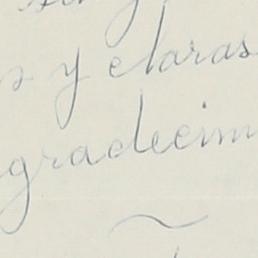 y claras
gradecim